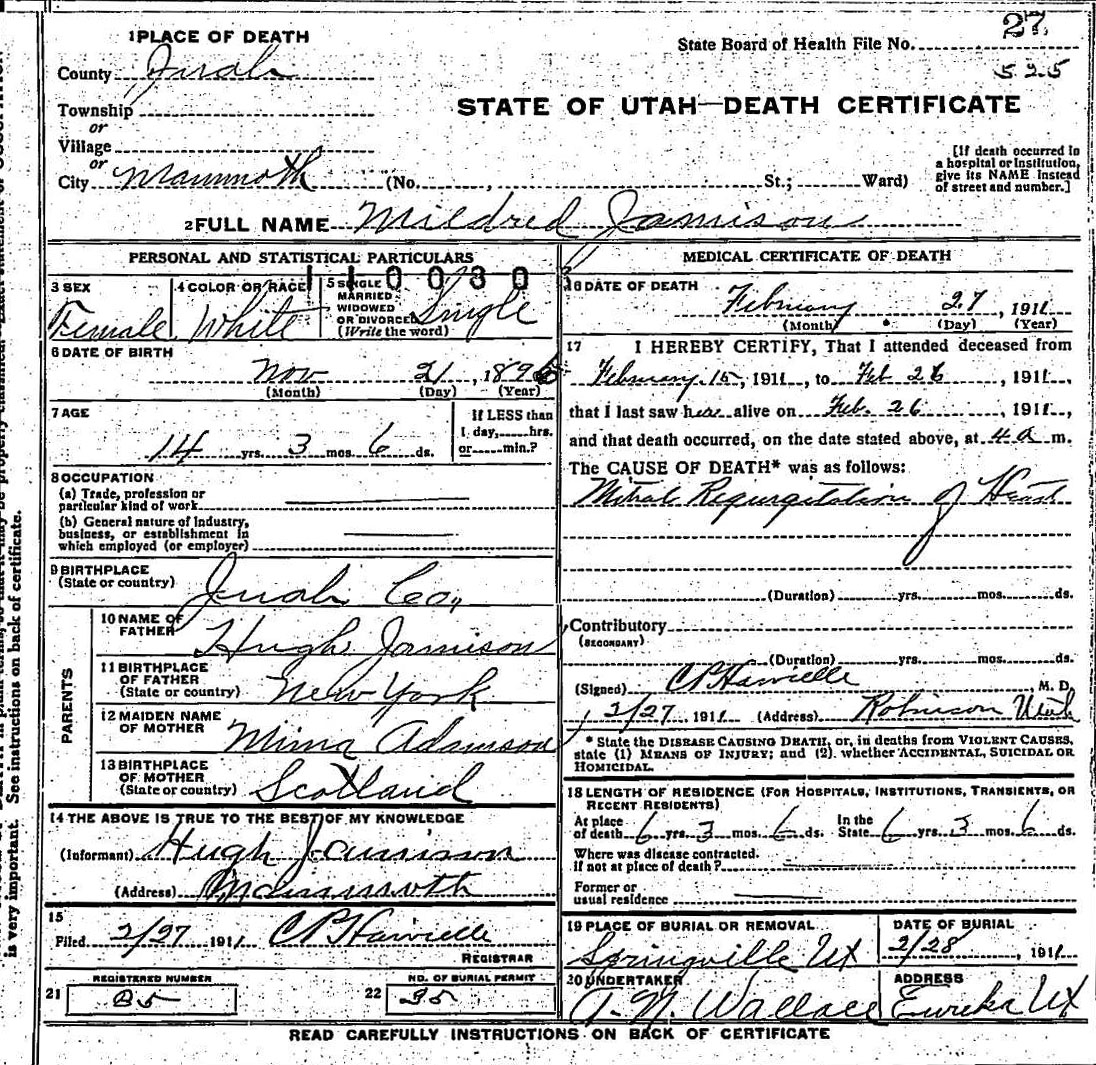 1 PLACE OF DEATH
State Board of Health File No. 27.
County Juab
525
Township
STATE OF UTAH—DEATH CERTIFICATE
or
Village
or
[If death occurred in
a hospital or institution,
give its NAME instead
of street and number.]
City Mammoth (No. , St.; Ward)
2 FULL NAME Mildred Jamison
PERSONAL AND STATISTICAL PARTICULARS
110030
3 SEX Female
4 COLOR OR RACE White
5 SINGLE
MARRIED
WIDOWED
OR DIVORCED
(Write the word) Single
6 DATE OF BIRTH
Nov 21, 1896
(Month) (Day) (Year)
7 AGE
14 yrs. 3 mos. 6 ds.
If LESS than
1 day, hrs.
or min.?
8 OCCUPATION
(a) Trade, profession or
particular kind of work
(b) General nature of industry,
business, or establishment in
which employed (or employer)
9 BIRTHPLACE
(State or country) Juab Co,
PARENTS
10 NAME OF
FATHER Hugh Jamison
11 BIRTHPLACE
OF FATHER
(State or country) New York
12 MAIDEN NAME
OF MOTHER Mima Adamson
13 BIRTHPLACE
OF MOTHER
(State or country) Scotland
14 THE ABOVE IS TRUE TO THE BEST OF MY KNOWLEDGE
(Informant) Hugh Jamison
(Address) Mammoth
15
Filed 2/27 1911
REGISTRAR
REGISTERED NUMBER
21
NO. OF BURIAL PERMIT
22
MEDICAL CERTIFICATE OF DEATH
16 DATE OF DEATH
February 27, 1911
(Month) (Day) (Year)
17 I HEREBY CERTIFY, That I attended deceased from
February 15, 1911, to Feb 26, 1911,
that I last saw her alive on Feb. 26, 1911,
and that death occurred, on the date stated above, at 4 a m.
The CAUSE OF DEATH* was as follows:
Mitral Regurgitation of Heart
(Duration) yrs. mos. ds.
Contributory
(SECONDARY)
(Duration) yrs. mos. ds.
(Signed) M. D.
2/27 1911 (Address) Robinson Utah
* State the DISEASE CAUSING DEATH, or, in deaths from VIOLENT CAUSES,
state (1) MEANS OF INJURY; and (2) whether ACCIDENTAL, SUICIDAL OR
HOMICIDAL.
18 LENGTH OF RESIDENCE (FOR HOSPITALS, INSTITUTIONS, TRANSIENTS, OR
RECENT RESIDENTS)
At place
of death 6 yrs. 3 mos. 6 ds.
In the
State 6 yrs. 3 mos. 6 ds.
Where was disease contracted.
if not at place of death?
Former or
usual residence
19 PLACE OF BURIAL OR REMOVAL
Springville Ut
DATE OF BURIAL
2/28, 1911
20 UNDERTAKER
A. N. Wallace
ADDRESS
Eureka Ut
READ CAREFULLY INSTRUCTIONS ON BACK OF CERTIFICATE
See instructions on back of certificate.
is very important.